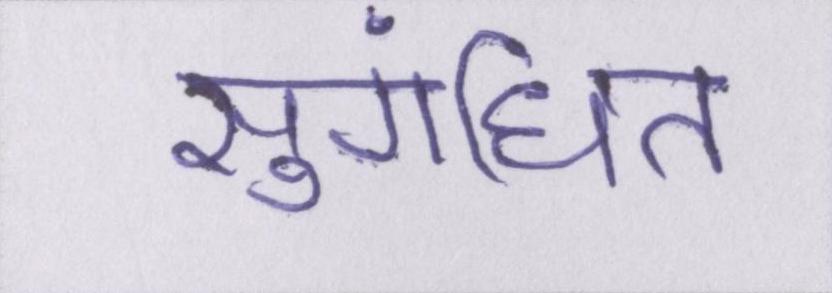 सुगंधित